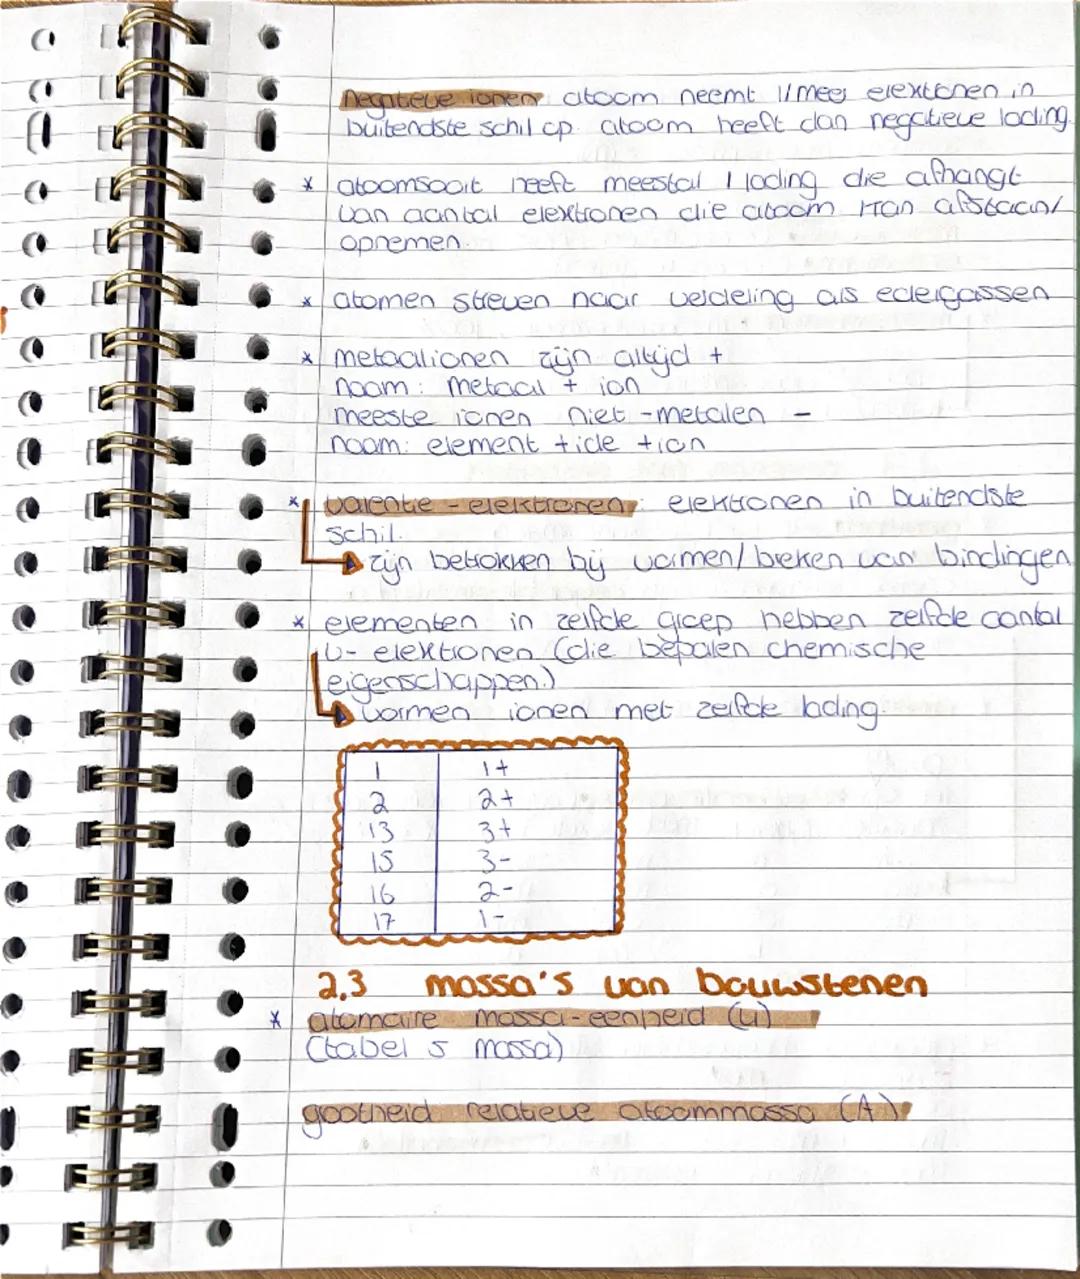 negatieve ionen atoom neemt 1/meer elektonen in
buitendste schil op. atoom heeft dan negatieve lading.
* atoomsoort heeft meestal 1 lading die afhangt
van aantal elektronen die atoom kan afstaan/
opnemen.
* atomen streven naar verdeling als edelgassen
* metaalionen zijn altijd +
naam: metaal + ion
meeste ionen niet-metalen -
naam: element +ide +ion
* valentie-elektronen: elektronen in buitendste
schil.
zijn betrokken bij vormen/breken van bindingen
* elementen in zelfde groep hebben zelfde aantal
v-elektronen (die bepalen chemische
eigenschappen.)
vormen ionen met zelfde lading.
1 1+
2 2+
13 3+
15 3-
16 2-
17 1-
2,3 massa's van bouwstenen
* atomaire massa-eenheid (u)
(tabel 5 massa)
gootheid relatieve atoommassa (A)